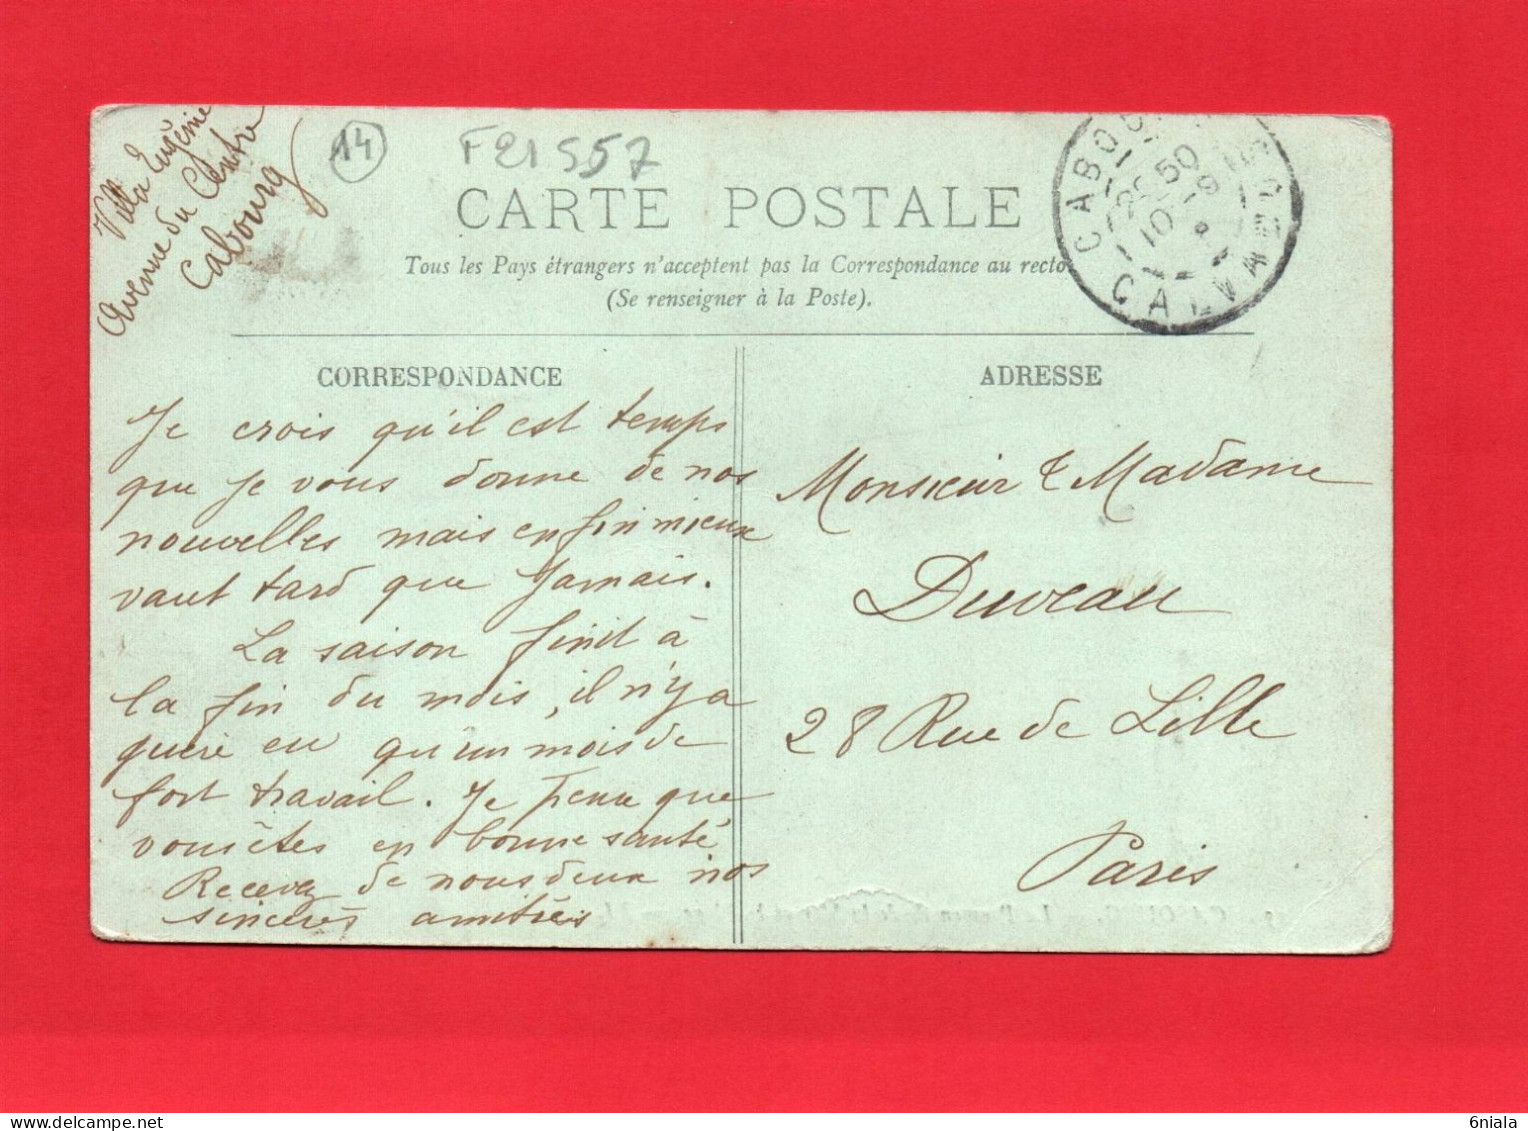 Villa Eugénie
Avenue du Centre
Cabourg
14
F21557
CARTE POSTALE
Tous les Pays étrangers n'acceptent pas la Correspondance au recto
(Se renseigner à la Poste).
CALVADOS
CORRESPONDANCE
Je crois qu'il est temps
que je vous donne de nos
nouvelles mais enfin mieux
vaut tard que jamais.
La saison finit à
la fin du mois, il n'y a
guère eu qu'un mois de
fort travail. Je pense que
vous êtes en bonne santé
Recevez de nous deux nos
sincères amitiés
ADRESSE
Monsieur & Madame
Duveau
28 Rue de Lille
Paris
6niala